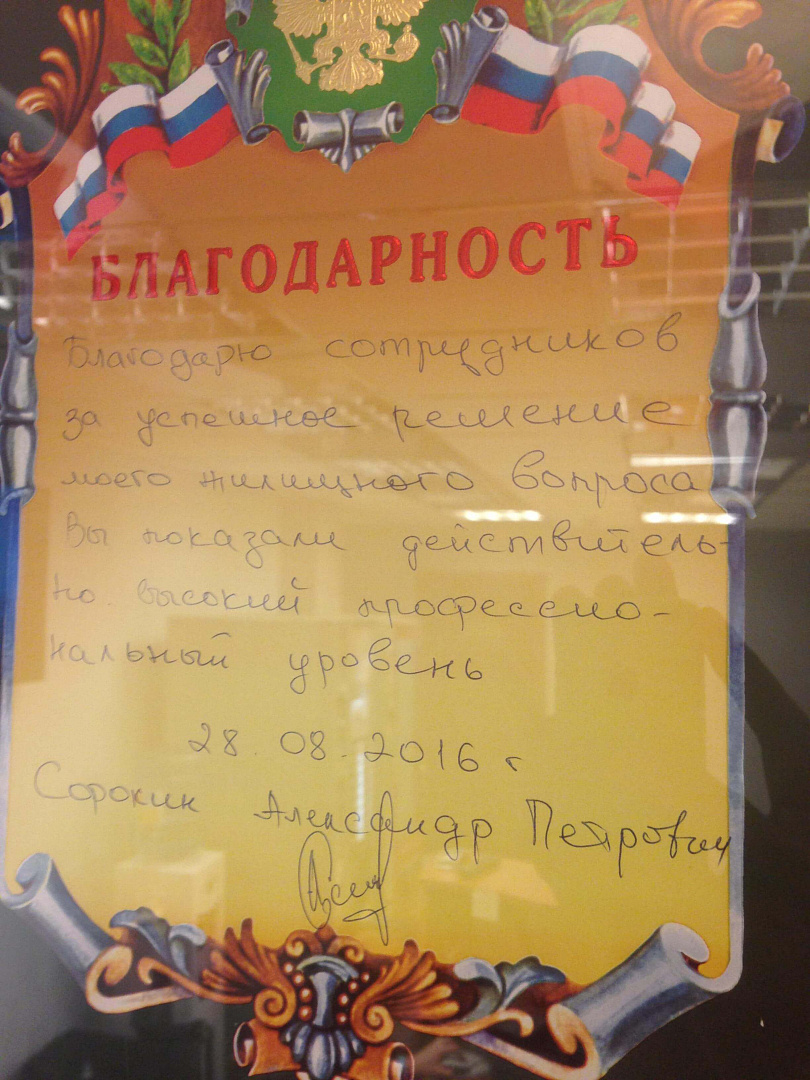 БЛАГОДАРНОСТЬ
Благодарю сотрудников
за успешное решение
моего жилищного вопроса
Вы показали действитель-
но высокий профессио-
нальный уровень
28.08.2016 г
Сорокин Александр Петрович